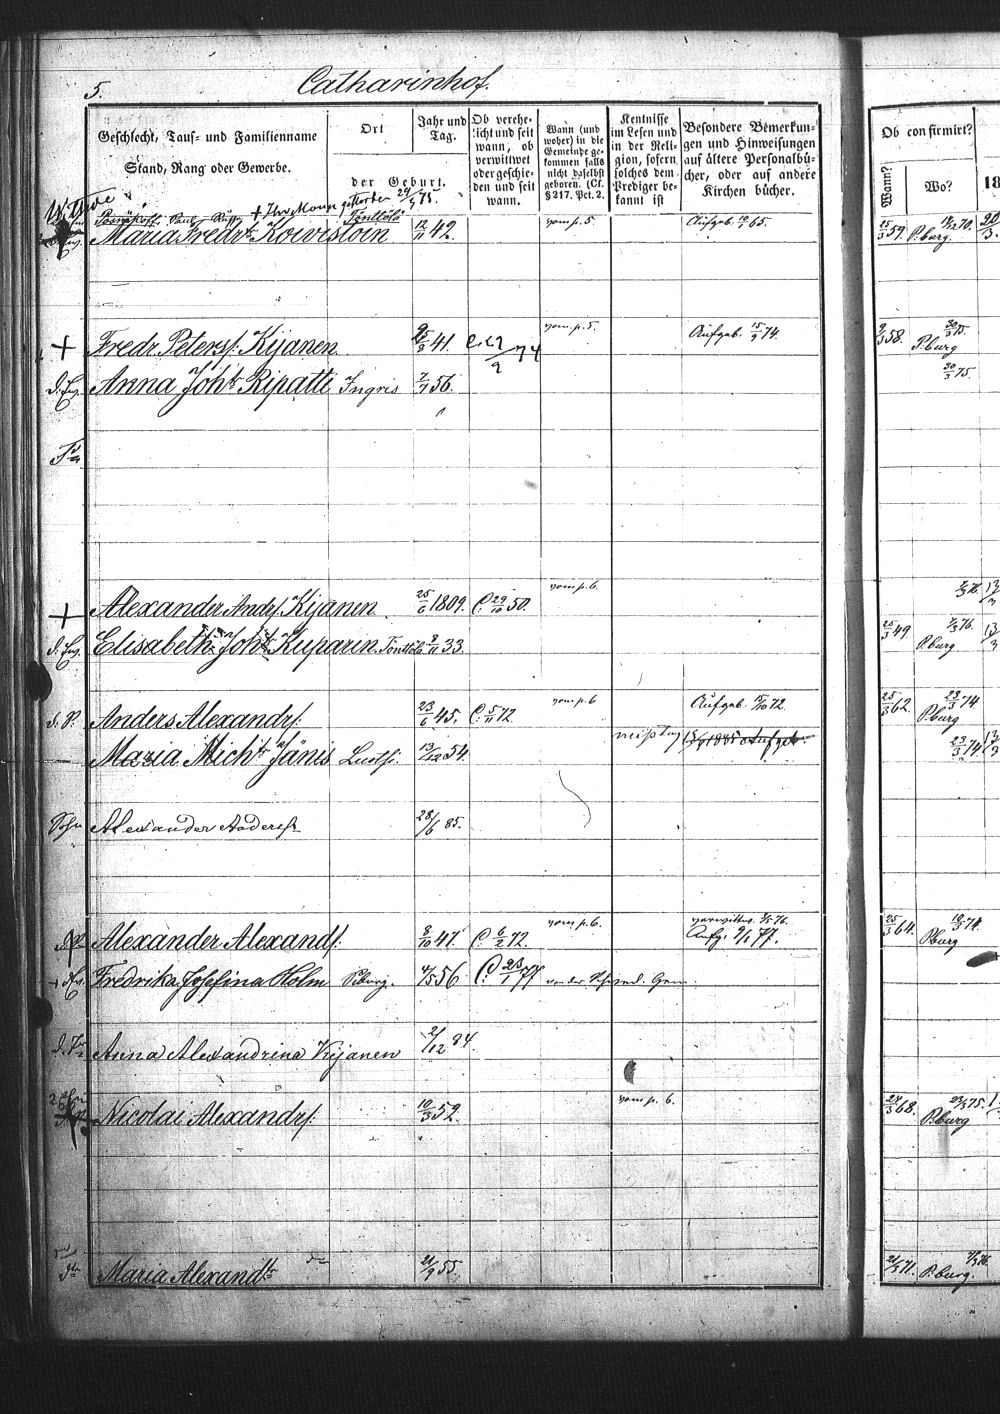 5. Catharinhof.
Geschlecht, Tauf- und Familienname
Stand, Rang oder Gewerbe.
Ort
der Geburt.
Jahr und
Tag.
Ob verehe-
licht und seit
wann, ob
verwittwet
oder geschie-
den und seit
wann.
Wann (und
woher) in die
Gemeinde ge-
kommen falls
nicht daselbst
geboren. (Cf.
§ 217. Pct. 2.
Kentnisse
im Lesen und
in der Reli-
gion, sofern
solches dem
Prediger be-
kannt ist
Besondere Bemerkun-
gen und Hinweisungen
auf ältere Personalbü-
cher, oder auf andere
Kirchen bücher.
Ob confirmirt?
Wann?
Wo?
18
Wittwe + Ihr Mann gestorben 29/9 75.
Tönttölö
Maria Fredr. Koivistoin 12/11 42. vom p. 5. Aufgeb. 10/1 65. 25/3 59. P.burg 14/12 70. 20/3.
+ Fredr. Peters. Kijanen 25/3 41. vom p. 5. Aufgeb. 15/9 74. 9/3 58. P.burg 30/3 75.
d. Ew. Anna Joh. Ripatti Ingris 7/7 56. 30/3 75.
+ Alexander Andr. Kijanen 25/6 1809. C. 29/10 50. vom p. 6.
d. Ew. Elisabeth Joh. Kuparin Tönttölö 9/11 33. 25/3 49 P.burg 7/3 76. 13/3
d. P. Anders Alexandrs. 23/6 45. C. 5/11 72. vom p. 6 Aufgeb. 15/10 72 25/3 62 P.burg 23/3 74
Maria Mich. Jänis Lustf. 13/12 54. 23/3 74 13/3
Sohn Alexander Anderss 28/6 85.
Alexander Alexands. 8/10 47. C. 6/2 72. vom p. 6. verwittw. 76. Aufg. 9/1 77. 25/3 64. P.burg 10/3 74.
Fredrika Josefina Holm P.burg. 4/5 56 C. 23/1 77
Anna Alexandrina Kijanen 2/12 84.
Nicolai Alexandrs. 10/3 52. vom p. 6. 24/3 68. P.burg 23/3 75.
Maria Alexand. 21/9 55. 21/3 71. P.burg.